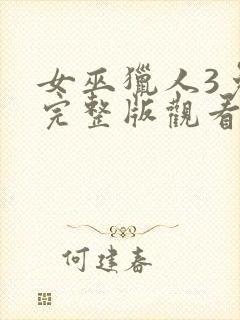 女巫獵人3
完整版觀看
何建春